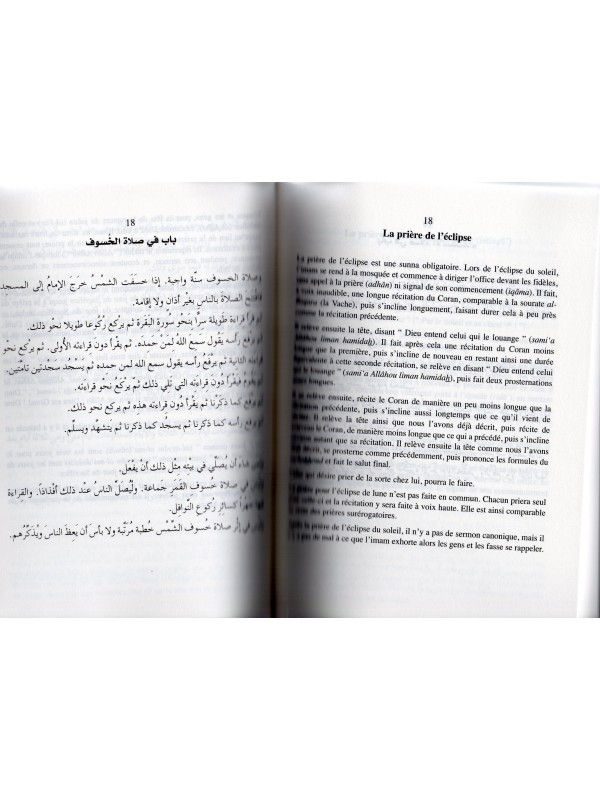 18
باب في صلاة الخُسوف
وصلاة الخسوف سنّة واجبة. إذا خسَفَت الشمْسُ خرَجَ الإمامُ إلى المسجد
فافتتح الصلاةَ بالناس بغير أذان ولا إقامة.
قراءة طويلة سرًّا بنحو سُورة البقَرة ثم يركع رُكوعا طويلا نحو ذلك.
يرفع رأسه يقول سمع الله لمن حمده. ثم يقْرأ دُون قراءته الأُولى. ثم يركَع نحْو
قراءته الثانية ثم يرْفَعُ رأسه يقول سمع الله لمن حمده ثم يسْجُد سَجْدتَين تامّتين.
ثم يقوم فيقْرأ دُون قراءته التي تلي ذلك ثم يركَعُ نحْو قراءته.
ثم يرفع كما ذكرْنا ثم يقْرأ دُون قراءته هذه ثم يركَع نحو ذلك.
ثم يرفع رأسه كما ذكرنا ثم يسجُد كما ذكرْنا ثم يتشهّد ويسلّم.
ولمن شاء أن يُصلّي في بيْته مثْل ذلك أنْ يفْعَل.
وليس في صلاة خُسوف القَمَر جَماعة. وليُصلّ الناسُ عند ذلك أفْذاذًا. والقراءة
فيها جهْرًا كسائر رُكوع النوافل.
وليس في إثْر صلاة خُسوف الشَّمْس خُطبة مُرتّبة ولا بأس أن يعِظَ الناسَ ويُذكّرَهم.
18
La prière de l'éclipse
La prière de l'éclipse est une sunna obligatoire. Lors de l'éclipse du soleil,
l'imam se rend à la mosquée et commence à diriger l'office devant les fidèles,
sans appel à la prière (adhân) ni signal de son commencement (iqâma). Il fait,
à voix inaudible, une longue récitation du Coran, comparable à la sourate al-
Baqara (la Vache), puis s'incline longuement, faisant durer cela à peu près
comme la récitation précédente.
Il relève ensuite la tête, disant " Dieu entend celui qui le louange " (sami'a
Allâhou liman hamidah). Il fait après cela une récitation du Coran moins
longue que la première, puis s'incline de nouveau en restant ainsi une durée
équivalente à cette seconde récitation, se relève en disant " Dieu entend celui
qui le louange " (sami'a Allâhou liman hamidah), puis fait deux prosternations
longues.
Il se relève ensuite, récite le Coran de manière un peu moins longue que la
récitation précédente, puis s'incline aussi longtemps que ce qu'il vient de
réciter. Il relève la tête ainsi que nous l'avons déjà décrit, puis récite de
nouveau le Coran, de manière moins longue que ce qui a précédé, puis s'incline
autant que sa récitation. Il relève ensuite la tête comme nous l'avons
dit, se prosterne comme précédemment, puis prononce les formules du
et fait le salut final.
qui désire prier de la sorte chez lui, pourra le faire.
prière pour l'éclipse de lune n'est pas faite en commun. Chacun priera seul
celle-ci et la récitation y sera faite à voix haute. Elle est ainsi comparable
des prières surérogatoires.
la prière de l'éclipse du soleil, il n'y a pas de sermon canonique, mais il
pas de mal à ce que l'imam exhorte alors les gens et les fasse se rappeler.